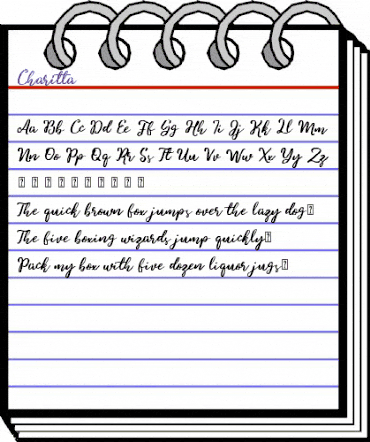 Charitta
Aa Bb Cc Dd Ee Ff Gg Hh Ii Jj Kk Ll Mm
Nn Oo Pp Qq Rr Ss Tt Uu Vv Ww Xx Yy Zz
The quick brown fox jumps over the lazy dog
The five boxing wizards jump quickly
Pack my box with five dozen liquor jugs